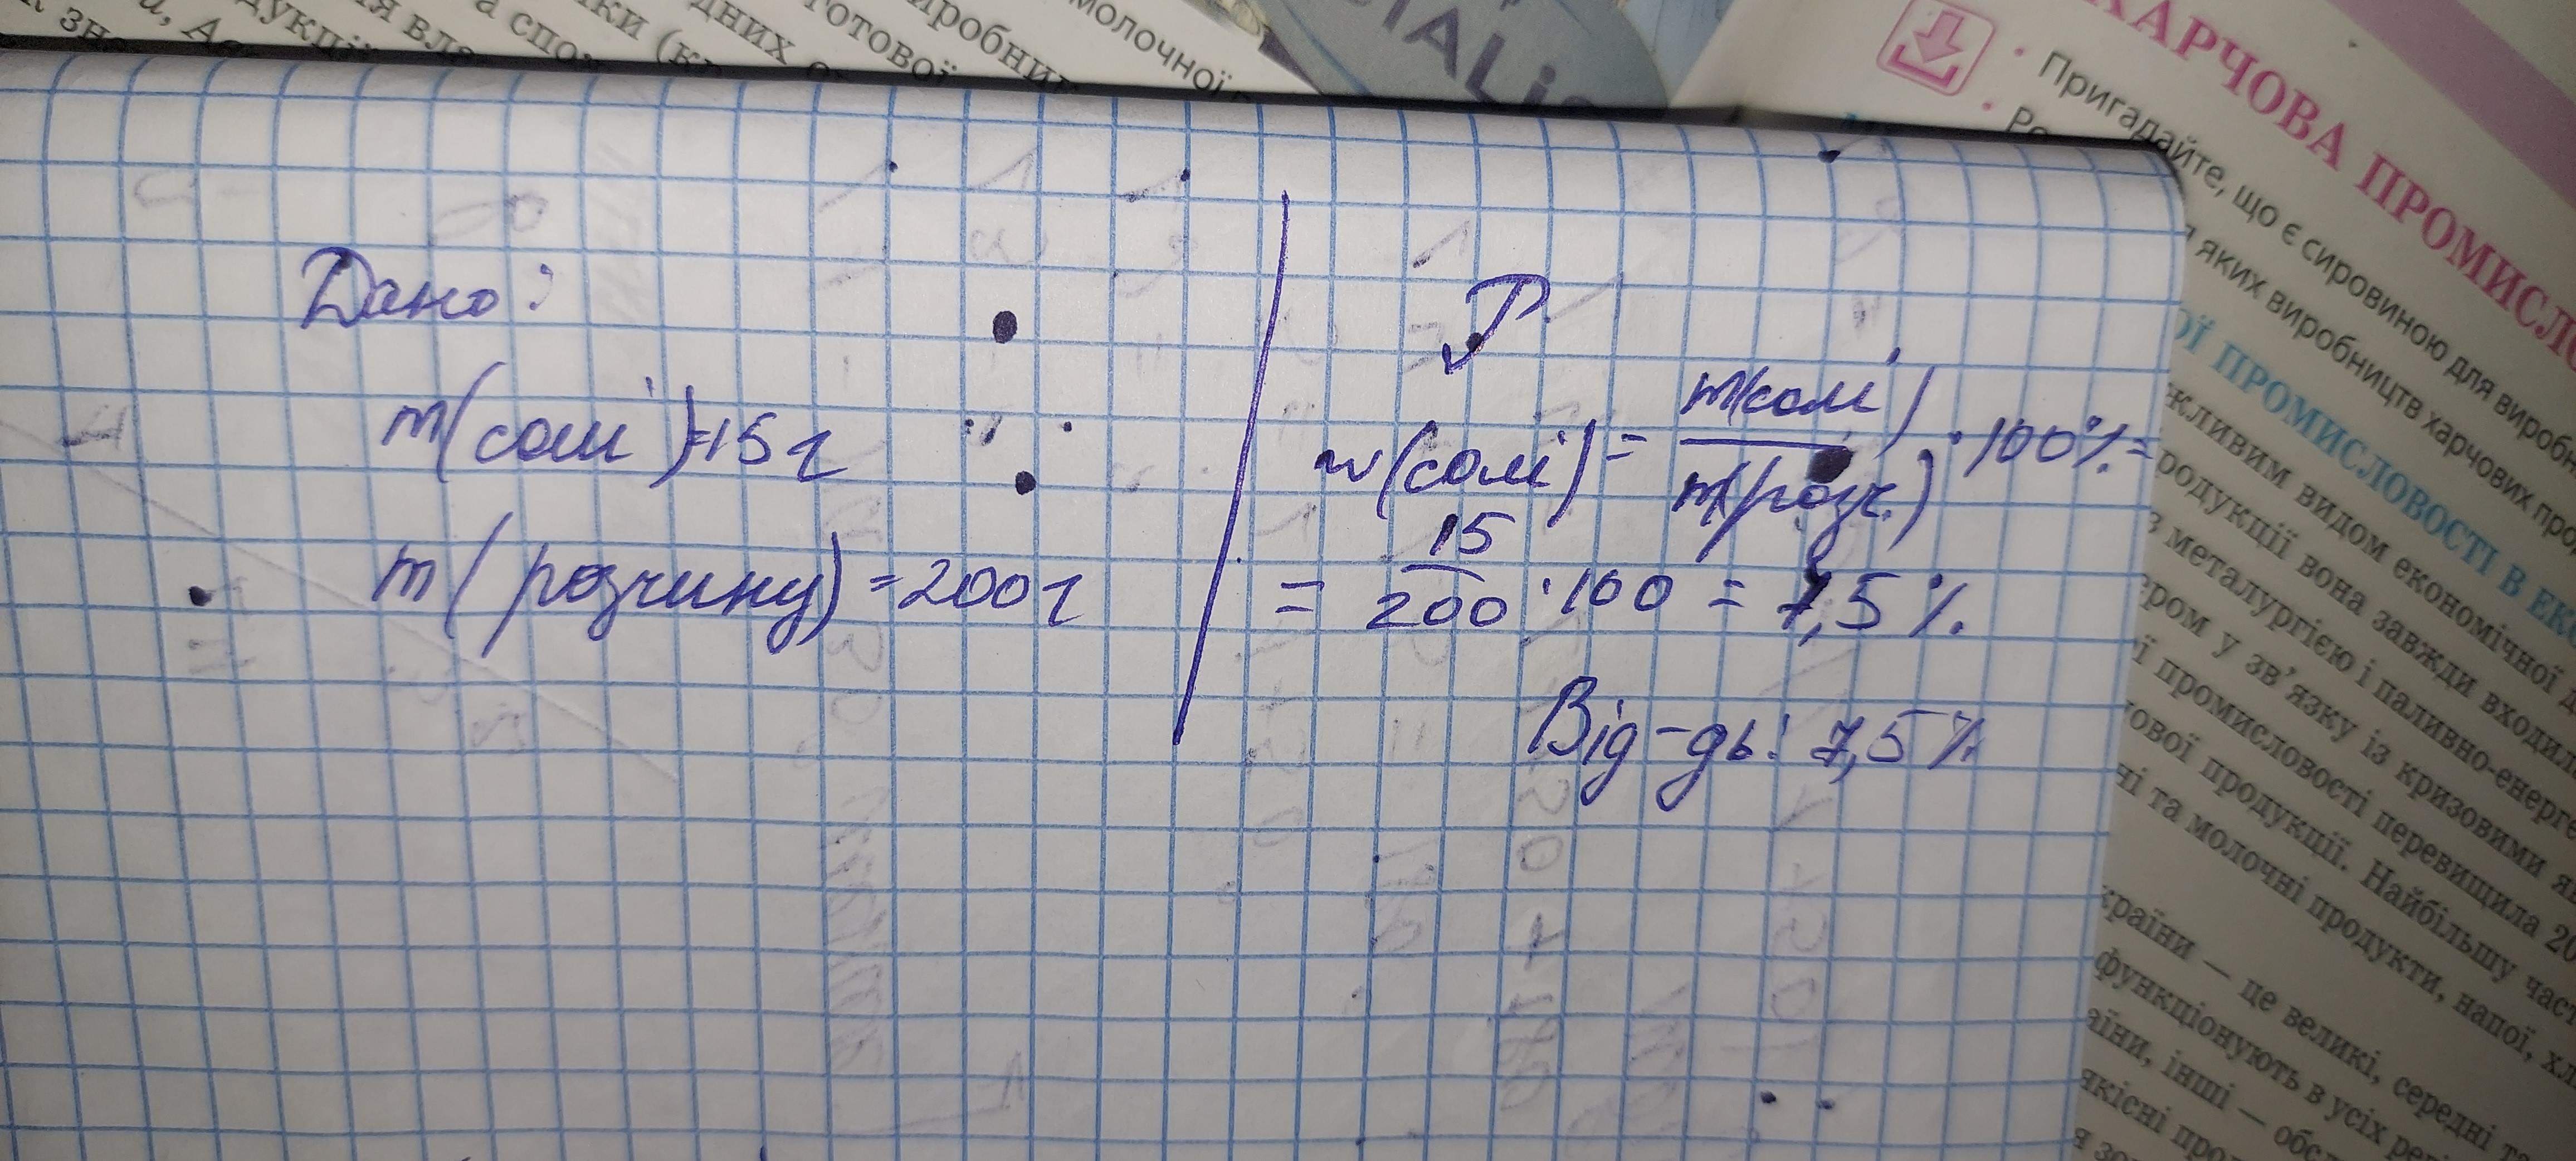 Дано:
m(солі)=15г
m(розчину)=200г
Р.
w(солі)= m(солі) / m(розч.) · 100%=
= 15/200 · 100 = 7,5%.
Від-дь: 7,5%
ХАРЧОВА ПРОМИСЛО
Пригадайте, що є сировиною для виробн
яких виробництв харчових про
ОЇ ПРОМИСЛОВОСТІ В ЕК
жливим видом економічної д
родукції вона завжди входил
з металургією і паливно-енерг
ром у зв'язку із кризовими я
ї промисловості перевищила 20
ової продукції. Найбільшу час
ні та молочні продукти, напої, хл
країни — це великі, середні т
функціонують в усіх ре
аїни, інші — обс
якісні про
молочної
робни
готової
дних
ки (к
а спо